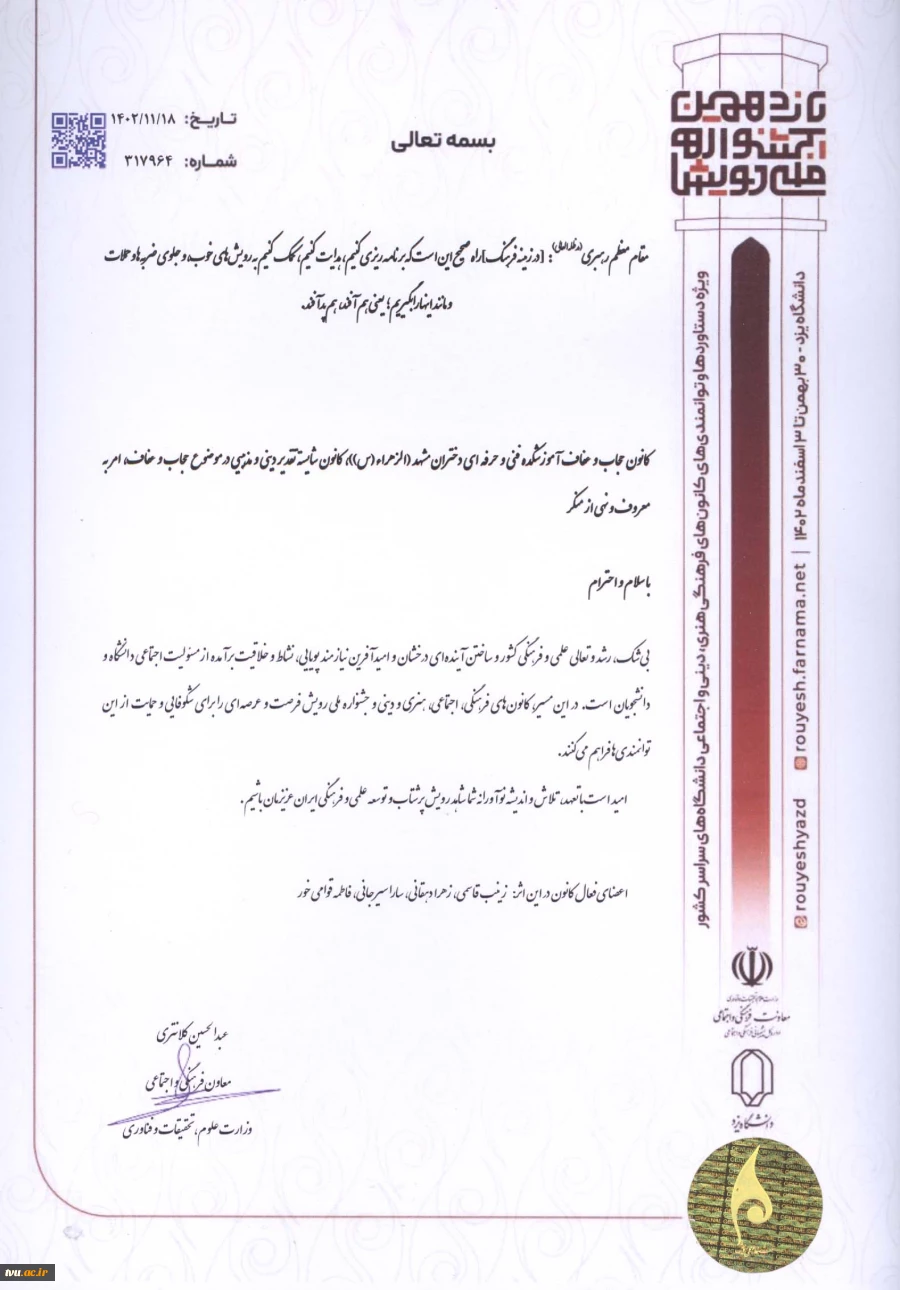 یازدهمین
جشنواره
ملی رویش‌ها
تاریخ: ۱۴۰۲/۱۱/۱۸
شماره: ۳۱۷۹۶۴
بسمه تعالی
مقام معظم رهبری (مدظله‌العالی): [در زمینه فرهنگ] راه صحیح این است که برنامه ریزی کنیم، هدایت کنیم، کمک کنیم به رویش های خوب و جلوی ضربه ها و حملات
و مانند اینها را بگیریم؛ یعنی هم آفند، هم پدآفند.
کانون حجاب و عفاف آموزشکده فنی و حرفه ای دختران مشهد (الزهراء (س))، کانون شایسته تقدیر دینی و مذهبی در موضوع حجاب و عفاف، امر به
معروف و نهی از منکر
با سلام و احترام
بی شک، رشد و تعالی علمی و فرهنگی کشور و ساختن آینده ای درخشان و امیدآفرین نیازمند پویایی، نشاط و خلاقیت برآمده از مسئولیت اجتماعی دانشگاه و
دانشجویان است. در این مسیر، کانون های فرهنگی، اجتماعی، هنری و دینی و جشنواره ملی رویش فرصت و عرصه ای را برای شکوفایی و حمایت از این
توانمندی ها فراهم می کنند.
امید است با تعهد، تلاش و اندیشه نوآورانه شما شاهد رویش پرشتاب و توسعه علمی و فرهنگی ایران عزیزمان باشیم.
اعضای فعال کانون در این اثر: زینب قاسمی، زهرا دهقانی، سارا سیرجانی، فاطمه قوامی خور
عبدالحسین کلانتری
معاون فرهنگی و اجتماعی
وزارت علوم، تحقیقات و فناوری
ویژه دستاوردها و توانمندی‌های کانون‌های فرهنگی هنری، دینی و اجتماعی دانشگاه‌های سراسر کشور
دانشگاه یزد - ۳۰ بهمن تا ۳ اسفندماه ۱۴۰۲ | rouyesh.farnama.net
rouyeshyazd
وزارت علوم، تحقیقات و فناوری
معاونت فرهنگی و اجتماعی
دانشگاه یزد
tvu.ac.ir